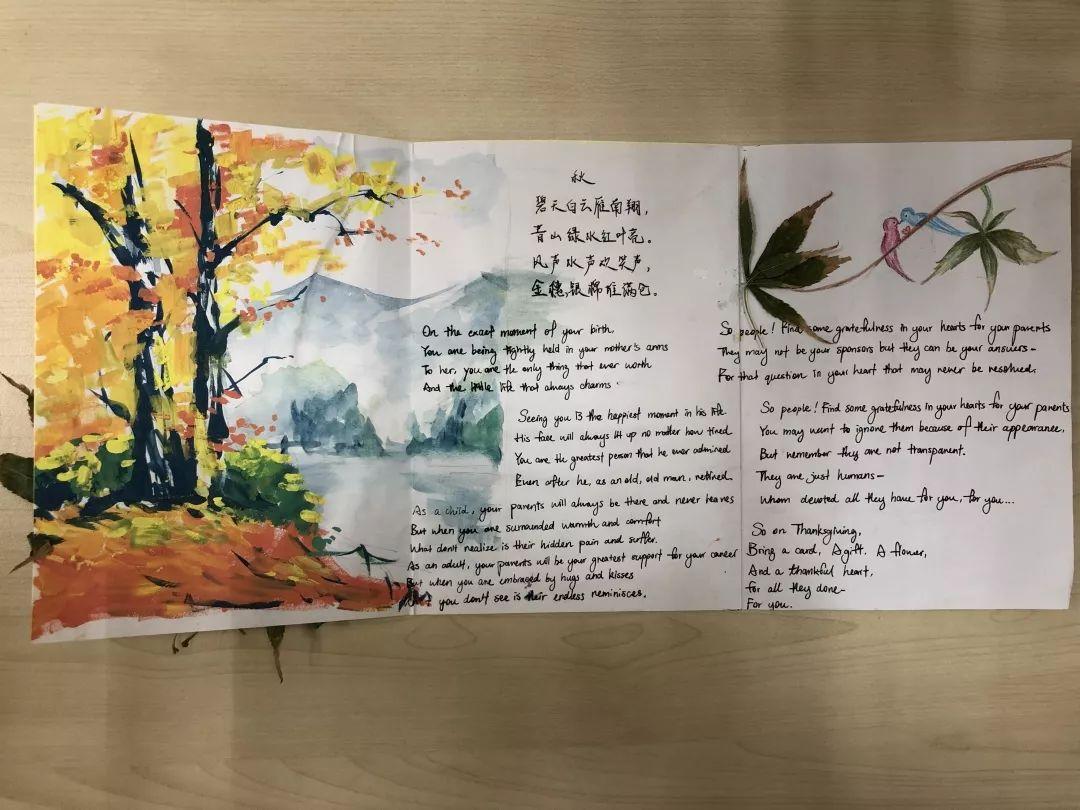 秋
碧天白云雁南翔，
青山绿水红叶亮。
风声水声欢笑声，
金穗银棉堆满包。
On the exact moment of your birth,
You are being tightly held in your mother's arms
To her, you are the only thing that ever worth
And the little life that always charms.
Seeing you is the happiest moment in his life
His face will always lit up no matter how tired
You are the greatest person that he ever admired
Even after he, as an old, old man, retired.
As a child, your parents will always be there and never leaves
But when you are surrounded warmth and comfort
What don't realize is their hidden pain and suffer.
As an adult, your parents will be your greatest support for your career
But when you are embraced by hugs and kisses
you don't see is their endless reminisces.
So people! Find some gratefulness in your hearts for your parents
They may not be your sponsors but they can be your answers-
For that question in your heart that may never be resolved.
So people! Find some gratefulness in your hearts for your parents
You may want to ignore them because of their appearance,
But remember they are not transparent.
They are just humans-
Whom devoted all they have for you, for you...
So on Thanksgiving,
Bring a card, A gift, A flower,
And a thankful heart,
For all they done-
For you.